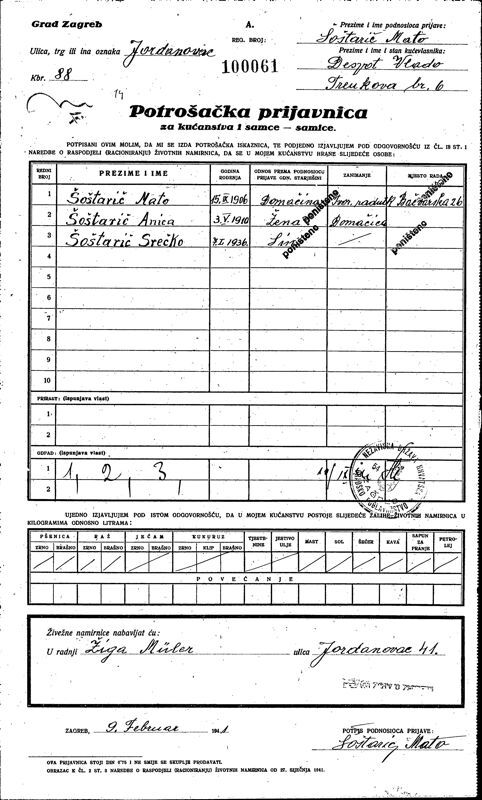 Grad Zagreb
A.
REG. BROJ:
100061
Prezime i ime podnosioca prijave:
Šoštarić Mato
Ulica, trg ili ina oznaka Jordanovac
Prezime i ime i stan kućevlasnika:
Despot Vlado
Kbr. 88
Trenkova br. 6
Potrošačka prijavnica
za kućanstva i samce — samice.
POTPISANI OVIM MOLIM, DA MI SE IZDA POTROŠAČKA ISKAZNICA, TE PODJEDNO IZJAVLJUJEM POD ODGOVORNOŠĆU IZ ČL. 18 ST. 1
NAREDBE O RASPODJELI (RACIONIRANJU) ŽIVOTNIH NAMIRNICA, DA SE U MOJEM KUĆANSTVU HRANE SLIJEDEĆE OSOBE:
REDNI BROJ PREZIME I IME GODINA ROĐENJA ODNOS PREMA PODNOSIOCU PRIJAVE ODN. STARJEŠINI ZANIMANJE MJESTO RADA
1 Šoštarič Mato 15. IX. 1906 Domaćina Bačvarska 26
2 Šoštarič Anica 3. V. 1910 Žena Domaćica
3 Šoštarič Srećko I. 1936. Sin
poništeno
poništeno
poništeno
poništeno
4
5
6
7
8
9
10
PRIRAST: (ispunjava vlast)
1
2
OTPAD: (ispunjava vlast)
1 1, 2, 3,
2
NEZAVISNA DRŽAVA HRVATSKA
UJEDNO IZJAVLJUJEM POD ISTOM ODGOVORNOŠĆU, DA U MOJEM KUĆANSTVU POSTOJE SLIJEDEĆE ZALIHE ŽIVOTNIH NAMIRNICA U
KILOGRAMIMA ODNOSNO LITRAMA:
PŠENICA RAŽ JEČAM KUKURUZ TJESTENINE JESTIVO ULJE MAST SOL ŠEĆER KAVA SAPUN ZA PRANJE PETROLEJ
ZRNO BRAŠNO ZRNO BRAŠNO ZRNO BRAŠNO ZRNO KLIP BRAŠNO
POVEĆANJE
Živežne namirnice nabavljat ću:
U radnji Žiga Müler ulica Jordanovac 41.
ZAGREB, 9. Februar 1941
POTPIS PODNOSIOCA PRIJAVE:
Šoštarić Mato
OVA PRIJAVNICA STOJI DIN 0'75 I NE SMIJE SE SKUPLJE PRODAVATI.
OBRAZAC K ČL. 2 ST. 3 NAREDBE O RASPODJELI (RACIONIRANJU) ŽIVOTNIH NAMIRNICA OD 27. SIJEČNJA 1941.